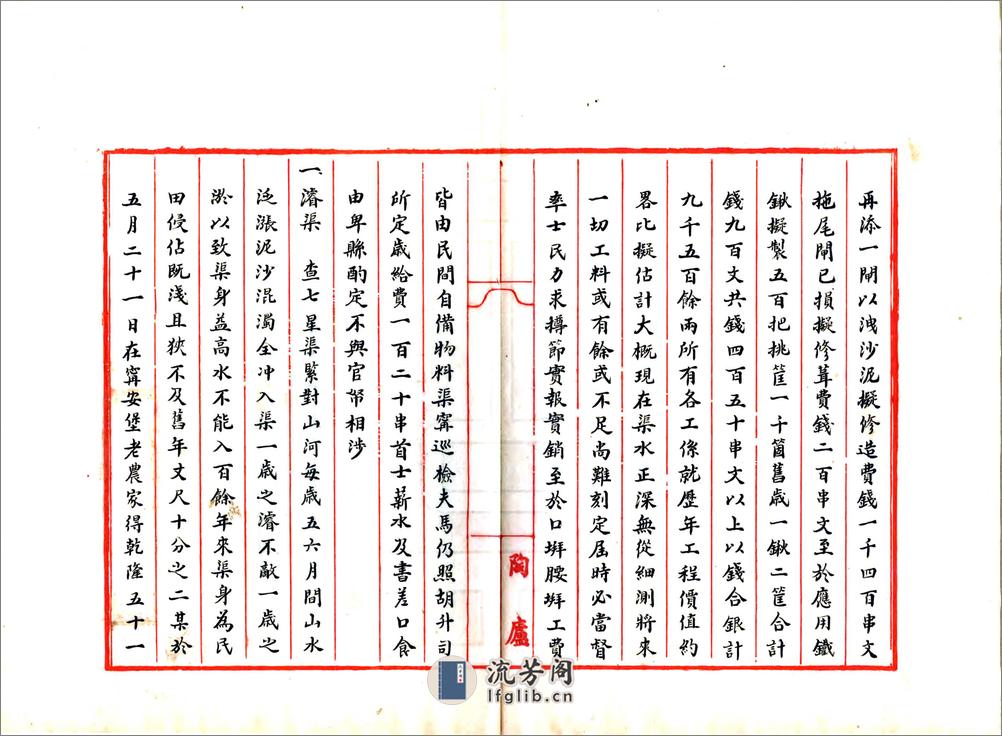 再添一閘以洩沙泥擬修造費錢一千四百串文
拖尾閘已損擬修葺費錢二百串文至於應用鐵
鍬擬製五百把挑筐一千箇舊歲一鍬二筐合計
錢九百文共錢四百五十串文以上以錢合銀計
九千五百餘兩所有各工係就歷年工程價值約
畧比擬佔計大概現在渠水正深無從細測將來
一切工料或有餘或不足尚難刻定屆時必當督
率士民力求撙節實報實銷至於口埧腰埧工費
皆由民間自備物料渠寗巡檢夫馬仍照胡升司
所定歲給費一百二十串首士薪水及書差口食
由卑縣酌定不與官帑相涉
一濬渠 查七星渠緊對山河每歲五六月間山水
泛漲泥沙混濁全冲入渠一歲之濬不敵一歲之
淤以致渠身益高水不能入百餘年來渠身為民
田侵佔既淺且狹不及舊年丈尺十分之二某於
五月二十一日在寗安堡老農家得乾隆五十一
陶廬
流芳阁
lfglib.cn